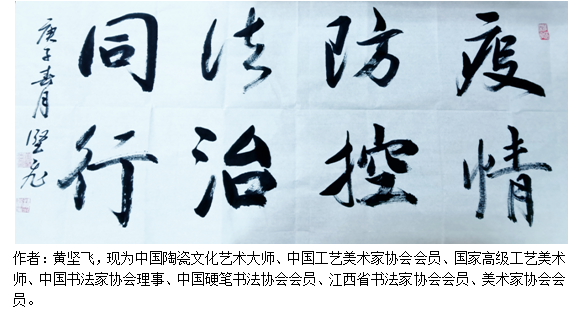 疫情
防控
法治
同行
庚子春月 坚飞
作者：黄坚飞，现为中国陶瓷文化艺术大师、中国工艺美术家协会会员、国家高级工艺美术
师、中国书法家协会理事、中国硬笔书法协会会员、江西省书法家协会会员、美术家协会会
员。